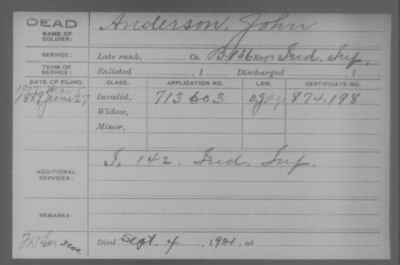 DEAD
NAME OF SOLDIER:
Anderson, John
SERVICE:
Late rank, Co. B, Reg't Ind. Inf.
TERM OF SERVICE:
Enlisted , 1 Discharged , 1
DATE OF FILING. CLASS. APPLICATION NO. LAW. CERTIFICATE NO.
June 27 Invalid, 713603 874.198
Widow,
Minor,
ADDITIONAL SERVICES:
I. 142. Ind. Inf.
REMARKS:
Died Sept. 4, 1901, at